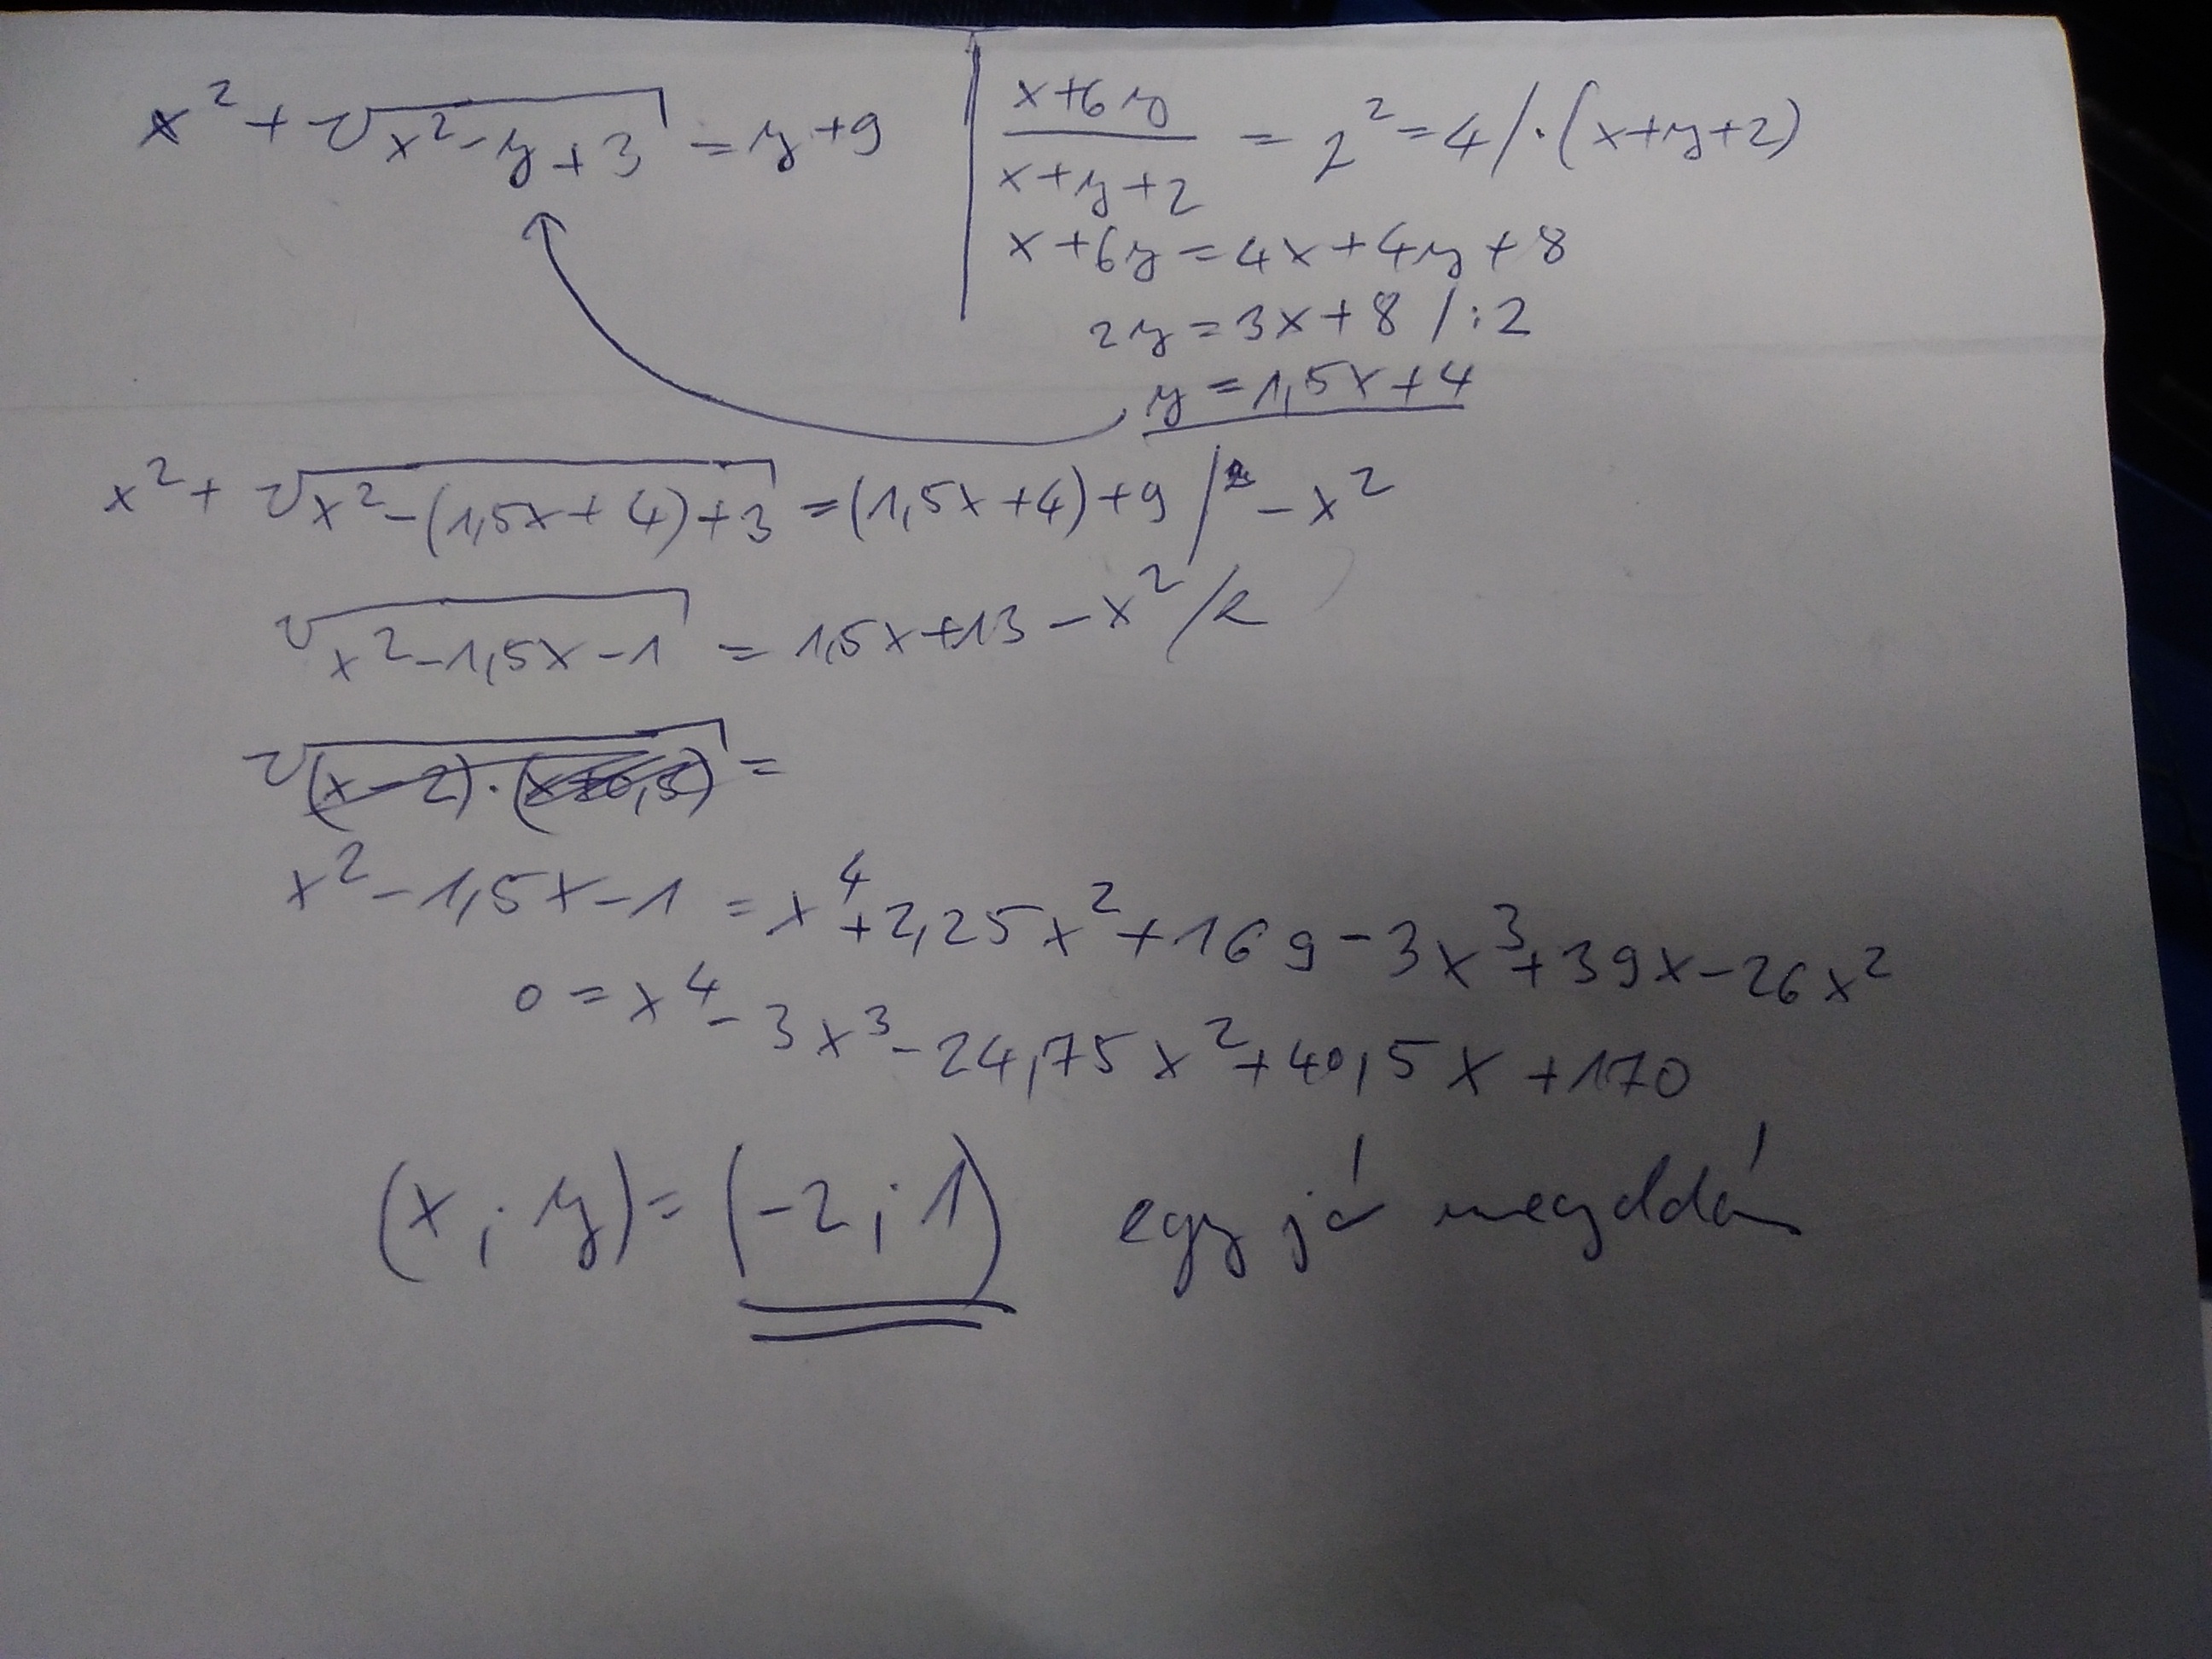 x² + √(x²-y+3) = y+9
(x+6y)/(x+y+2) = 2² = 4 /·(x+y+2)
x+6y = 4x+4y+8
2y = 3x+8 /:2
y = 1,5x+4
x² + √(x²-(1,5x+4)+3) = (1,5x+4)+9 / -x²
√(x²-1,5x-1) = 1,5x+13-x² /2
√((x-2)·(x+0,5)) =
x²-1,5x-1 = x⁴+2,25x²+169-3x³+39x-26x²
0 = x⁴-3x³-24,75x²+40,5x+170
(x;y) = (-2;1) egy jó megoldás